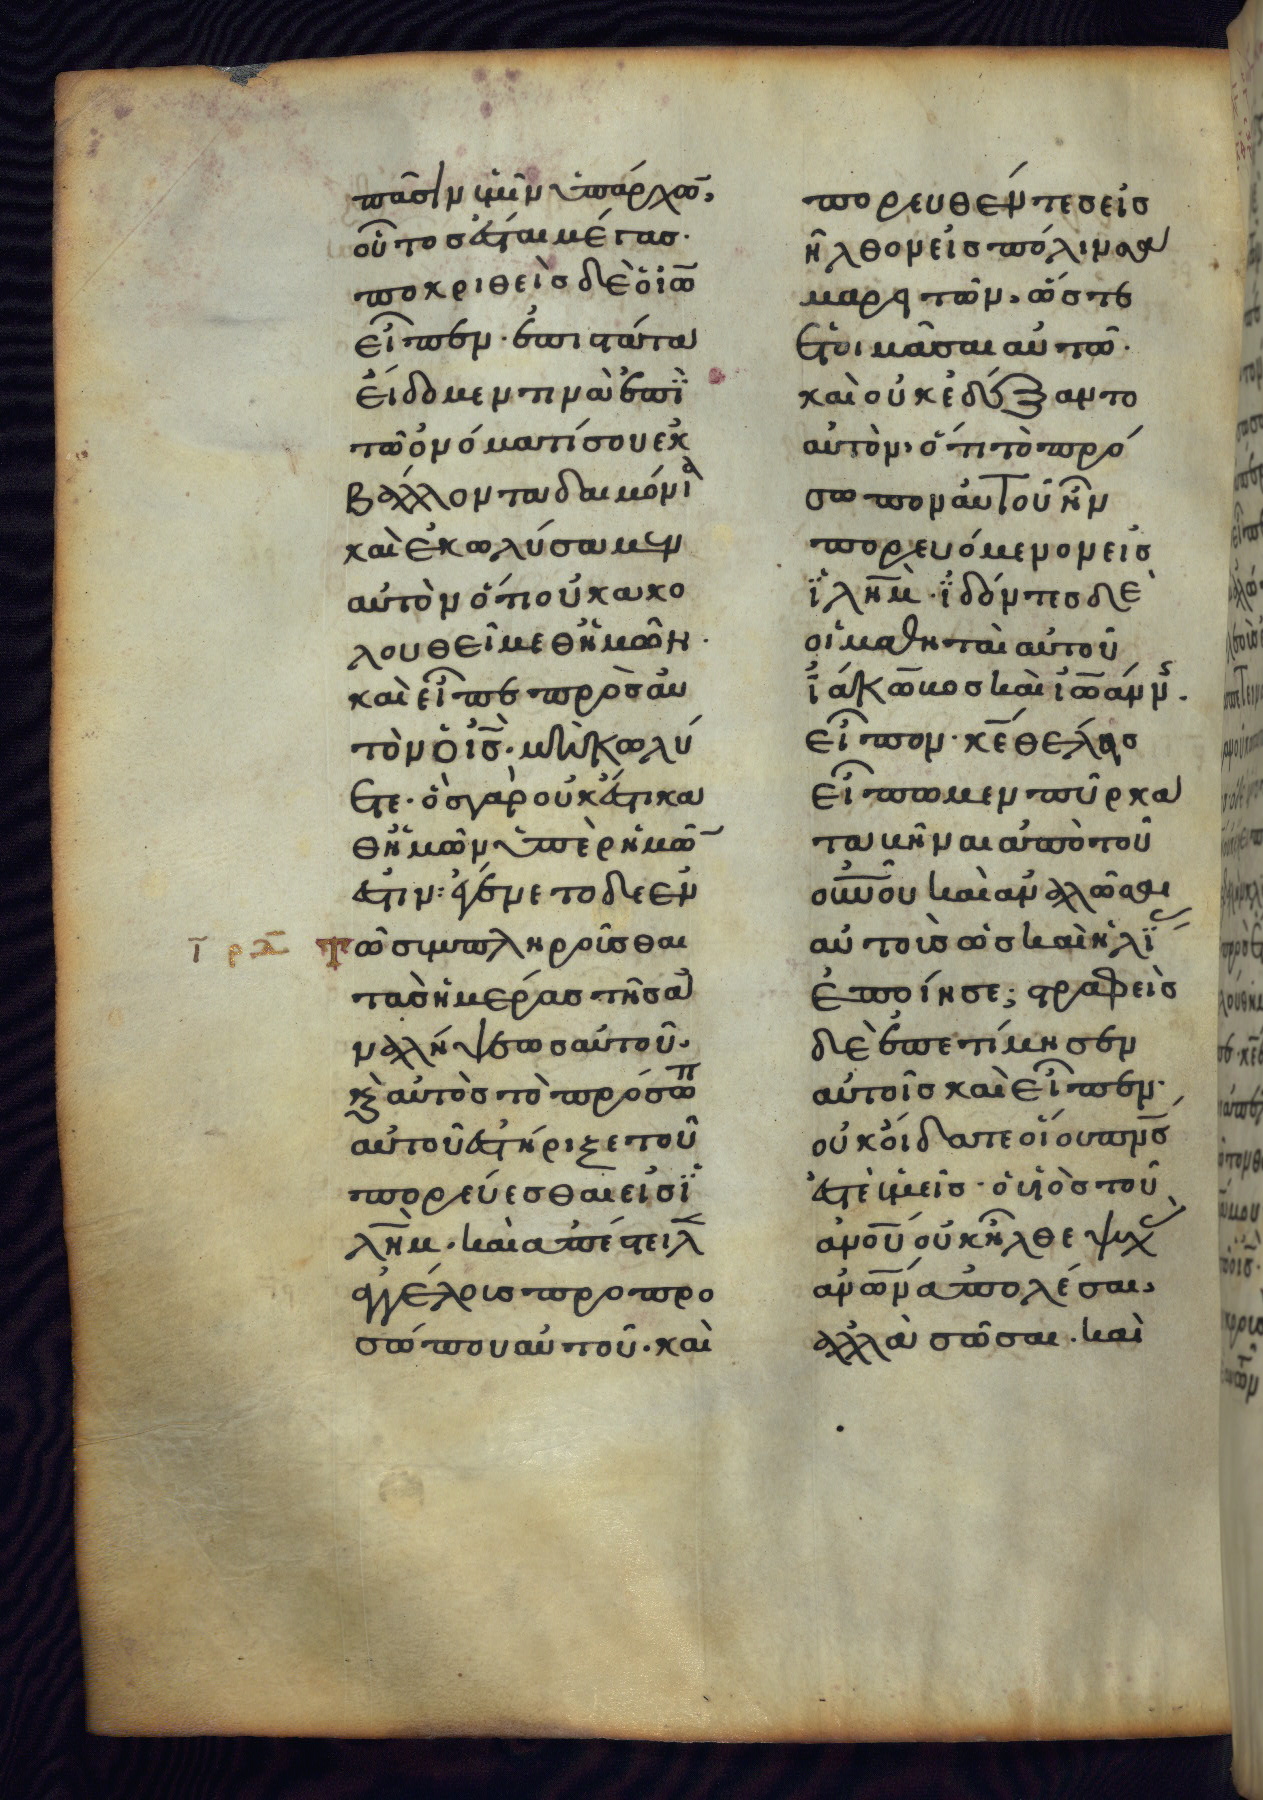 πᾶσιν ὑμῖν ὑπάρχω̅,
οὗτος ἔσται μέγας·
ποκριθεὶς δὲ ὁ ἰω̅
εἶπεν· ἐπιστάτα
εἴδομεν τινὰ ἐπὶ
τῶ ὀνόματί σου ἐκ
βάλλοντα δαιμόνια
καὶ ἐκωλύσαμεν
αὐτὸν ὅτι οὐκ ἀκο
λουθεῖ μεθ ἡμῶν·
καὶ εἶπε πρὸς αὐ
τὸν ὁ ι̅ς̅· μὴ κωλύ
ετε· ὃς γὰρ οὐκ ἔστι κα
θ ἡμῶν ὑπὲρ ἡμῶ̅
ἐστιν: ἐγένετο δὲ ἐν
τῶ συμπληροῦσθαι
τὰς ἡμέρας τῆς ἀ
ναλήψεως αὐτοῦ·
κ̀ αὐτὸς τὸ πρόσωπ
αὐτοῦ ἐστήριξε τοῦ
πορεύεσθαι εἰς ϊ
λη̅μ· καὶ ἀπέστειλ
ἀγγέλους πρὸ προ
σώπου αὐτοῦ· καὶ
πορευθέντες εἰσ
ῆλθον εἰς πόλιν σα
μαρειτῶν, ὥστε
ἑτοιμᾶσαι αὐτῶ·
καὶ οὐκ ἐδέξαντο
αὐτὸν, ὅτι τὸ πρό
σωπον αὐτοῦ ἦν
πορευόμενον εἰς
ϊλη̅μ· ϊδόντες δὲ
οἱ μαθηταὶ αὐτοῦ
ϊάκωβος καὶ ϊω̅άνν
εἶπον· κ̅ε̅ θέλεις
εἴπωμεν πῦρ κα
ταβῆναι ἀπὸ τοῦ
οὐ̅νοῦ καὶ ἀναλῶσαι
αὐτοὺς ὡς καὶ ἡλί
ἐποίησε; στραφεὶς
δὲ ἐπετίμησεν
αὐτοῖς καὶ εἶπεν·
οὐκ οἴδατε οἵου π̅ν̅ς̅
ἐστὲ ὑμεῖς· ὁ υἱὸς τοῦ
α̅νο̅υ οὐκ ἦλθε ψυχ
α̅νω̅ν ἀπολέσαι,
ἀλλὰ σῶσαι· καὶ